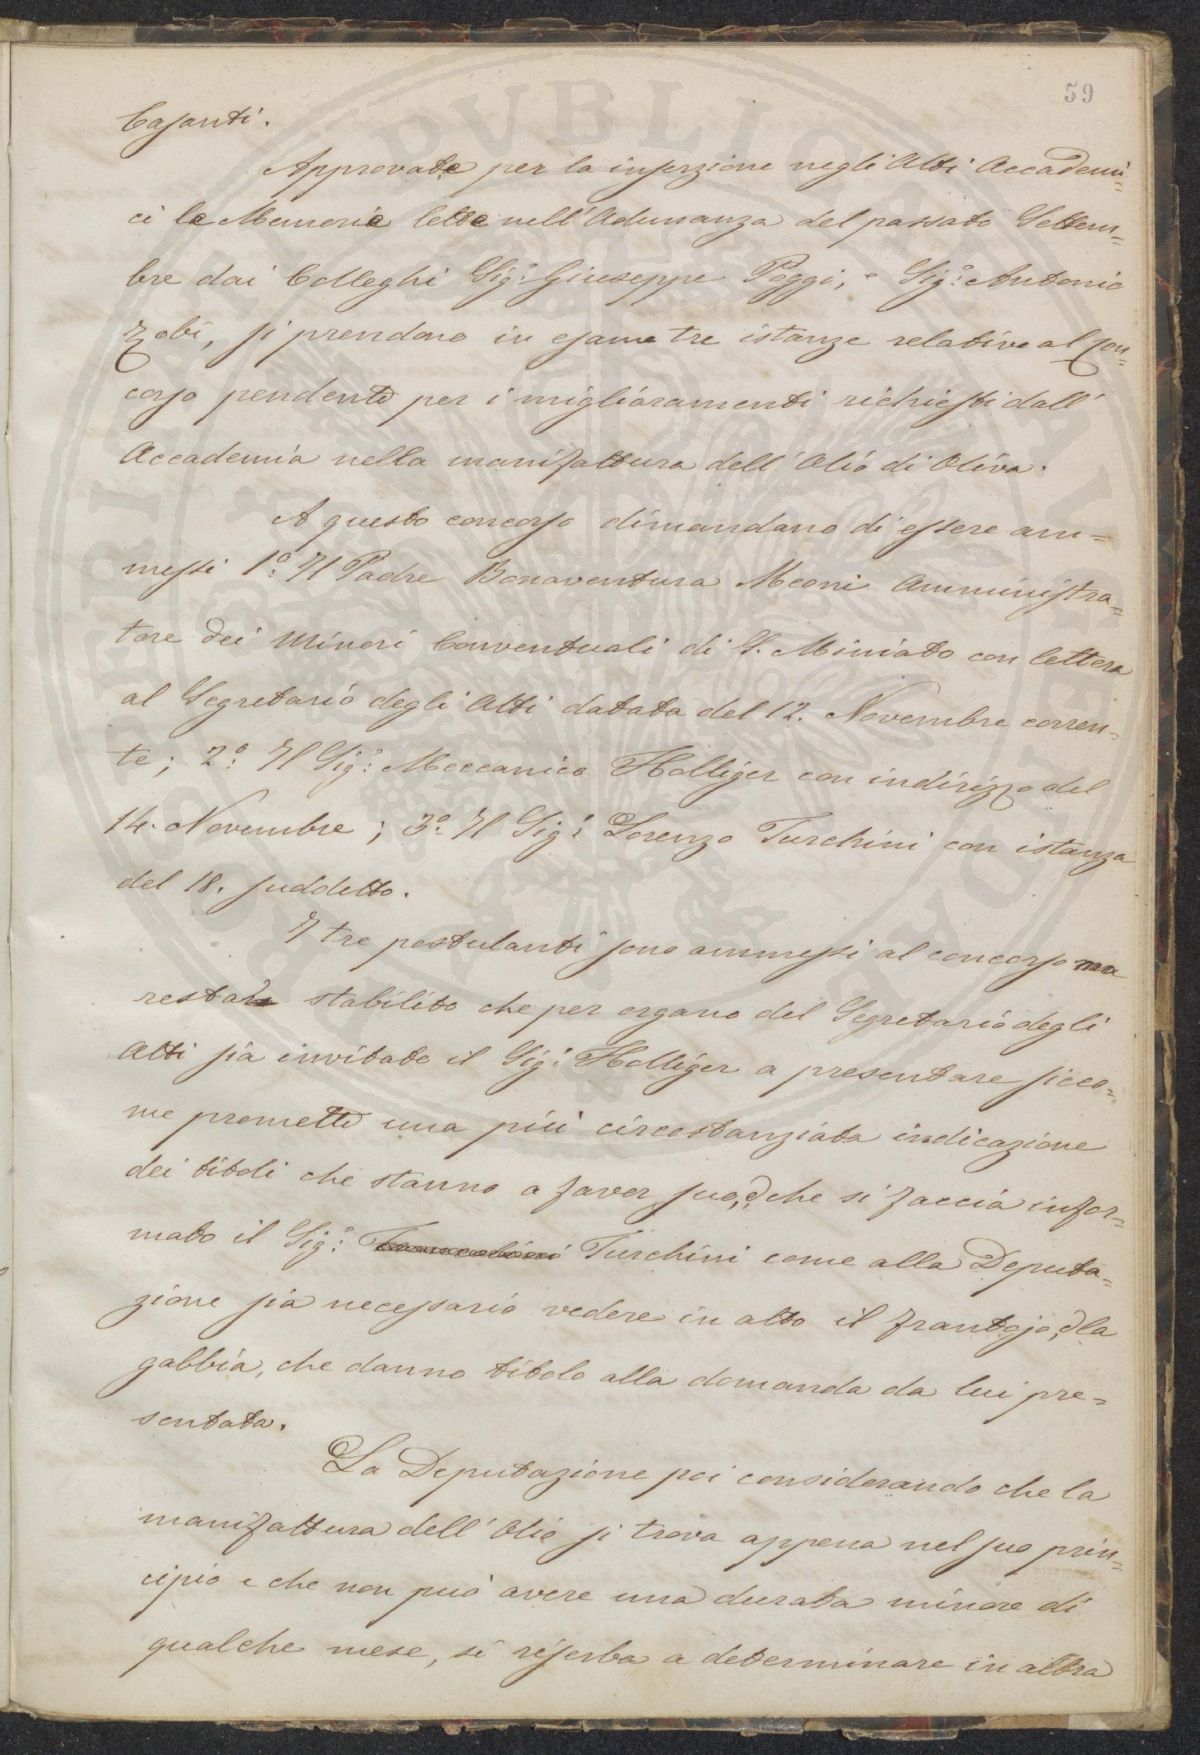 59
Casanti.
Approvate per la inserzione negli Atti Accademi=
ci le Memorie lette nell'Adunanza del passato Settem=
bre dai Colleghi Sig.r Giuseppe Poggi, e Sig.r Antonio
Zobi, si prendono in esame tre istanze relative al con=
corso pendente per i miglioramenti richiesti dall'
Accademia nella manifattura dell'Olio di Oliva.
A questo concorso dimandano di essere am=
messi 1.o Il Padre Bonaventura Meoni Amministra=
tore dei Minori Conventuali di S. Miniato con lettera
al Segretario degli Atti datata del 12. Novembre corren=
te; 2.o Il Sig.r Meccanico Holliger con indirizzo del
14. Novembre; 3.o Il Sig.r Lorenzo Turchini con istanza
del 18. suddetto.
I tre postulanti sono ammessi al concorso ma
resta stabilito che per organo del Segretario degli
Atti sia invitato il Sig.r Holliger a presentare sicco=
me promette una più circostanziata indicazione
dei titoli che stanno a favor suo, e che si faccia infor=
mato il Sig.r Turchini come alla Deputa=
zione sia necessario vedere in atto il frantojo, e la
gabbia, che danno titolo alla domanda da lui pre=
sentata.
La Deputazione poi considerando che la
manifattura dell'Olio si trova appena nel suo prin=
cipio e che non può avere una durata minore di
qualche mese, si riserba a determinare in altra